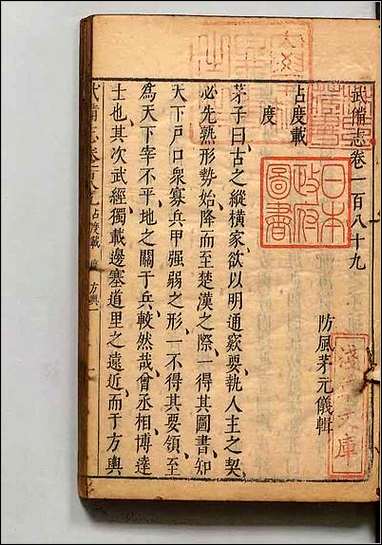 武備志卷一百八十九
防風茅元儀輯
占度載
度
茅子曰古之縱橫家欲以明通竅要執人主之契
必先熟形勢始降而至楚漢之際一得其圖書知
天下戶口衆寡兵甲强弱之形一不得其要領至
為天下宰不平地之關于兵較然哉曾丞相博達
士也其次武經獨載邊塞道里之遠近而于方輿
武備志卷 占度載 度 方輿一
日本
政府
圖書
淺草文庫